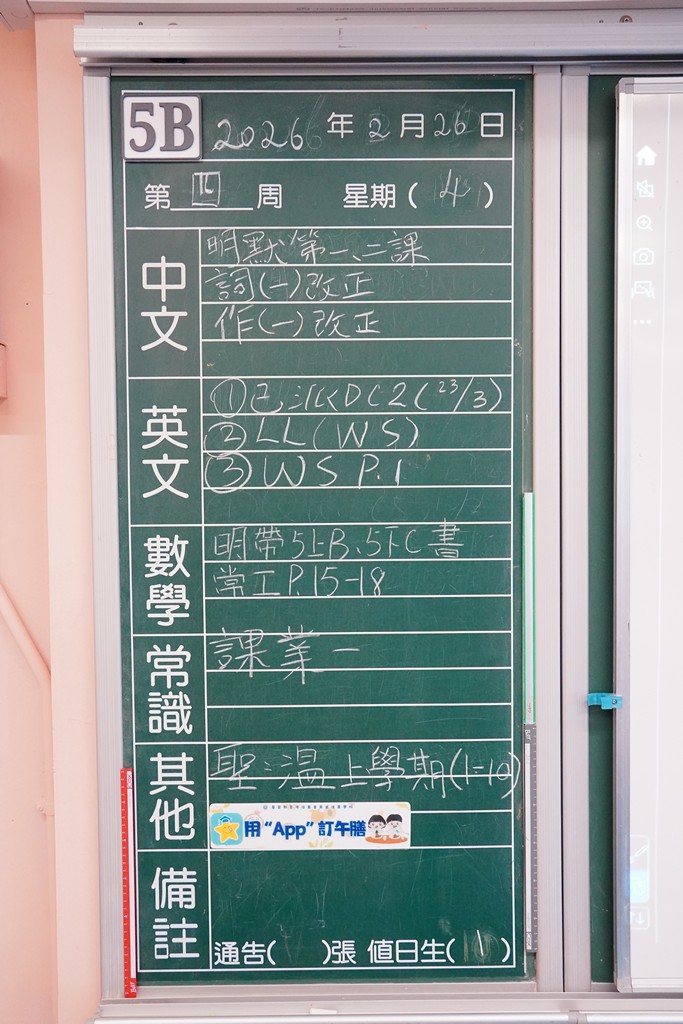 5B 2026年2月26日
第 周 星期(4)
中文
明默第一、二課
詞(一)改正
作(一)改正
英文
①已派KDC2(23/3)
②LL(WS)
③WS P.1
數學
明帶5上B、5下C書
常工P.15-18
常識
課業一
其他
聖:溫上學期(1-10)
用“App”訂午膳
備註
通告( )張 值日生(1)